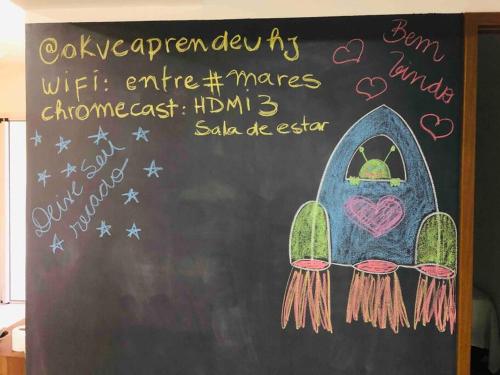 @okvcaprendeuhj
wifi: entre#mares
chromecast: HDMI 3
Sala de estar
Bem
Vindo
Deixe seu
recado